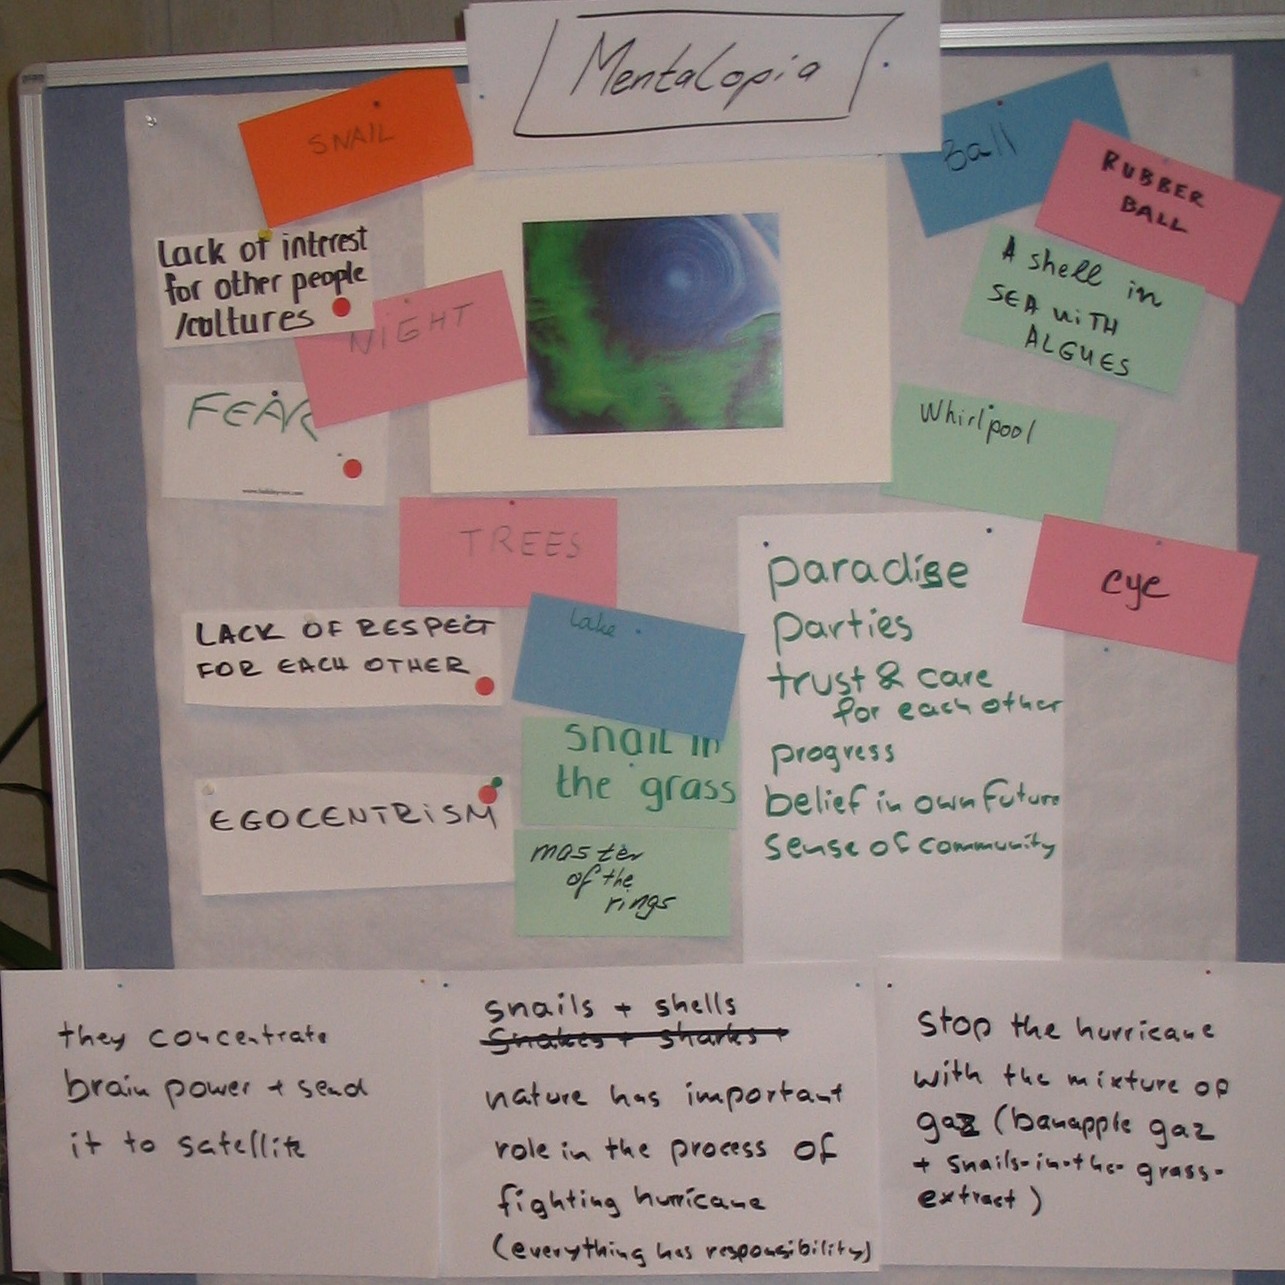 Mentalopia
SNAIL
Ball
RUBBER
BALL
Lack of interest
for other people
/cultures
NIGHT
A shell in
SEA WITH
ALGUES
FEAR
Whirlpool
TREES
eye
LACK OF RESPECT
FOR EACH OTHER
lake
snail in
the grass
EGOCENTRISM
master
of the
rings
paradise
parties
trust & care
for each other
progress
belief in own future
sense of community
they concentrate
brain power + send
it to satellite
snails + shells
Snakes + sharks +
nature has important
role in the process of
fighting hurricane
(everything has responsibility)
stop the hurricane
with the mixture of
gaz (banapple gaz
+ snails-in-the-grass-
extract)